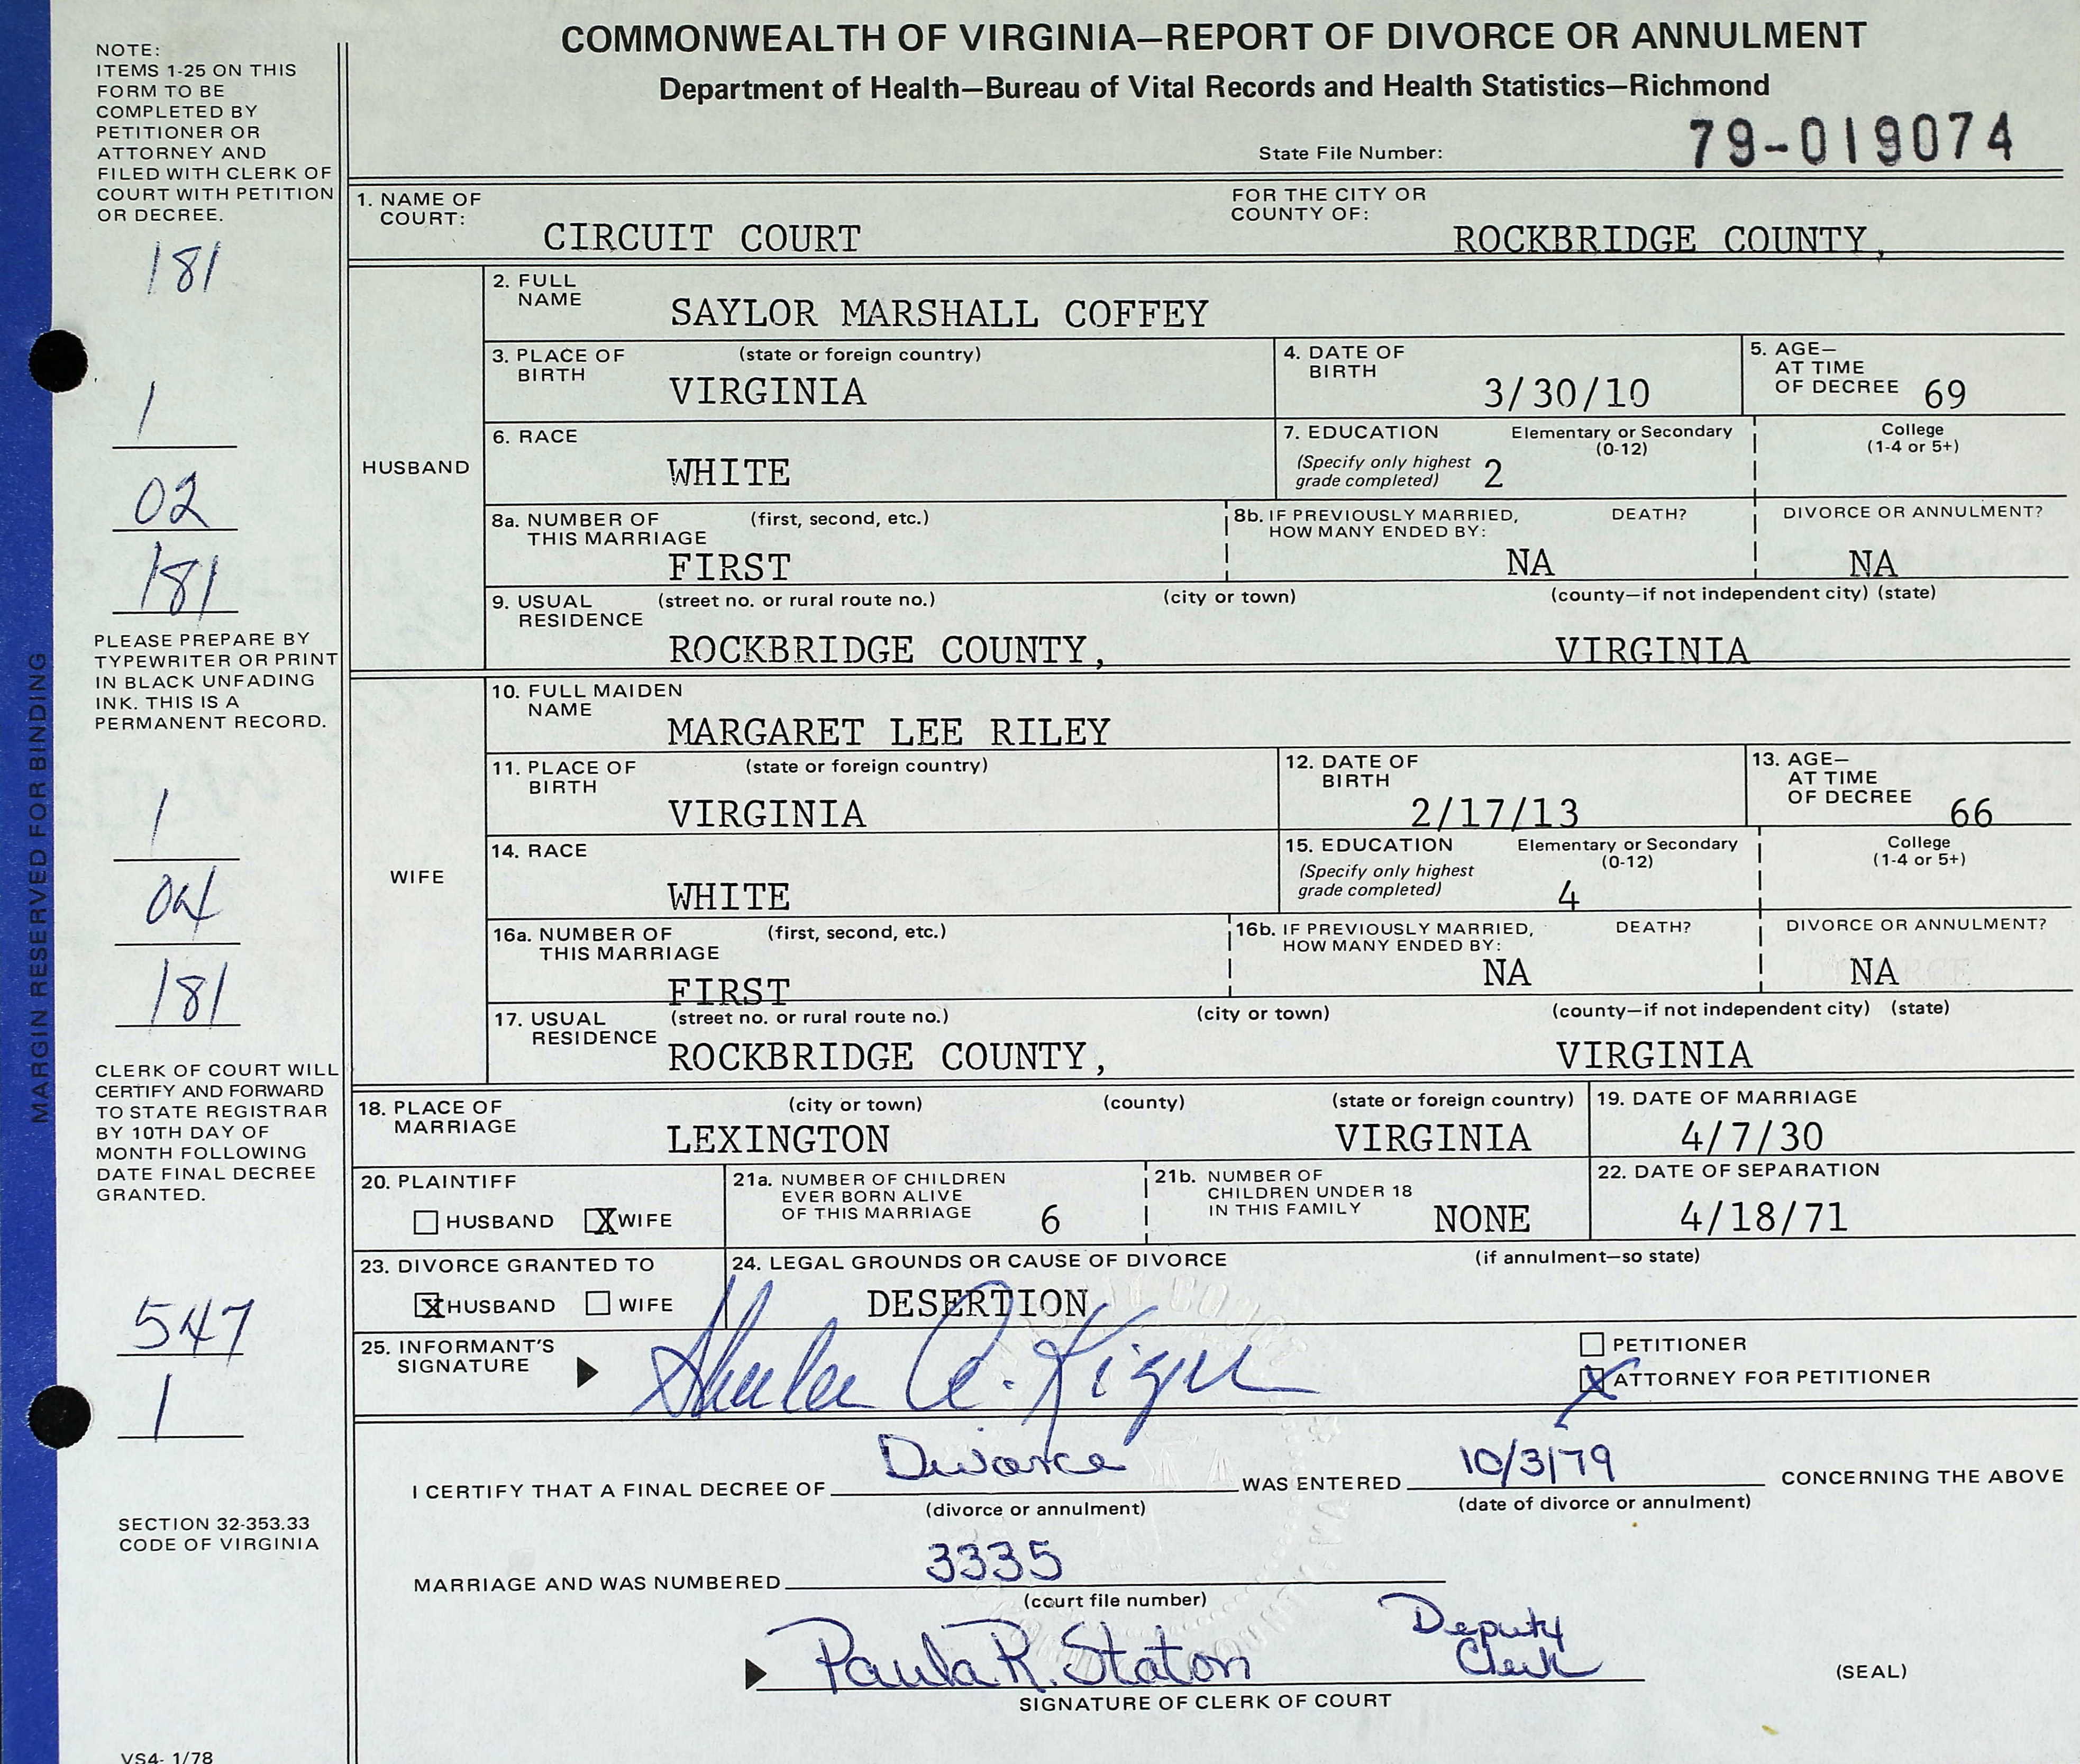 COMMONWEALTH OF VIRGINIA—REPORT OF DIVORCE OR ANNULMENT
Department of Health—Bureau of Vital Records and Health Statistics—Richmond
State File Number: 79-019074
NOTE:
ITEMS 1-25 ON THIS
FORM TO BE
COMPLETED BY
PETITIONER OR
ATTORNEY AND
FILED WITH CLERK OF
COURT WITH PETITION
OR DECREE.
181
1
02
181
PLEASE PREPARE BY
TYPEWRITER OR PRINT
IN BLACK UNFADING
INK. THIS IS A
PERMANENT RECORD.
1
04
181
CLERK OF COURT WILL
CERTIFY AND FORWARD
TO STATE REGISTRAR
BY 10TH DAY OF
MONTH FOLLOWING
DATE FINAL DECREE
GRANTED.
547
1
SECTION 32-353.33
CODE OF VIRGINIA
VS4- 1/78
MARGIN RESERVED FOR BINDING
1. NAME OF COURT: CIRCUIT COURT FOR THE CITY OR COUNTY OF: ROCKBRIDGE COUNTY,
HUSBAND
2. FULL NAME SAYLOR MARSHALL COFFEY
3. PLACE OF BIRTH (state or foreign country) VIRGINIA 4. DATE OF BIRTH 3/30/10 5. AGE— AT TIME OF DECREE 69
6. RACE WHITE 7. EDUCATION (Specify only highest grade completed) Elementary or Secondary (0-12) 2 College (1-4 or 5+)
8a. NUMBER OF THIS MARRIAGE (first, second, etc.) FIRST 8b. IF PREVIOUSLY MARRIED, HOW MANY ENDED BY: DEATH? NA DIVORCE OR ANNULMENT? NA
9. USUAL RESIDENCE (street no. or rural route no.) (city or town) (county—if not independent city) (state)
ROCKBRIDGE COUNTY, VIRGINIA
WIFE
10. FULL MAIDEN NAME MARGARET LEE RILEY
11. PLACE OF BIRTH (state or foreign country) VIRGINIA 12. DATE OF BIRTH 2/17/13 13. AGE— AT TIME OF DECREE 66
14. RACE WHITE 15. EDUCATION (Specify only highest grade completed) Elementary or Secondary (0-12) 4 College (1-4 or 5+)
16a. NUMBER OF THIS MARRIAGE (first, second, etc.) FIRST 16b. IF PREVIOUSLY MARRIED, HOW MANY ENDED BY: DEATH? NA DIVORCE OR ANNULMENT? NA
17. USUAL RESIDENCE (street no. or rural route no.) (city or town) (county—if not independent city) (state)
ROCKBRIDGE COUNTY, VIRGINIA
18. PLACE OF MARRIAGE (city or town) (county) (state or foreign country) 19. DATE OF MARRIAGE
LEXINGTON VIRGINIA 4/7/30
20. PLAINTIFF HUSBAND X WIFE 21a. NUMBER OF CHILDREN EVER BORN ALIVE OF THIS MARRIAGE 6 21b. NUMBER OF CHILDREN UNDER 18 IN THIS FAMILY NONE 22. DATE OF SEPARATION 4/18/71
23. DIVORCE GRANTED TO X HUSBAND WIFE 24. LEGAL GROUNDS OR CAUSE OF DIVORCE (if annulment—so state) DESERTION
25. INFORMANT'S SIGNATURE PETITIONER
X ATTORNEY FOR PETITIONER
I CERTIFY THAT A FINAL DECREE OF Divorce WAS ENTERED 10/3/79 CONCERNING THE ABOVE
(divorce or annulment) (date of divorce or annulment)
MARRIAGE AND WAS NUMBERED 3335
(court file number)
Paula R. Staton Deputy Clerk
SIGNATURE OF CLERK OF COURT (SEAL)